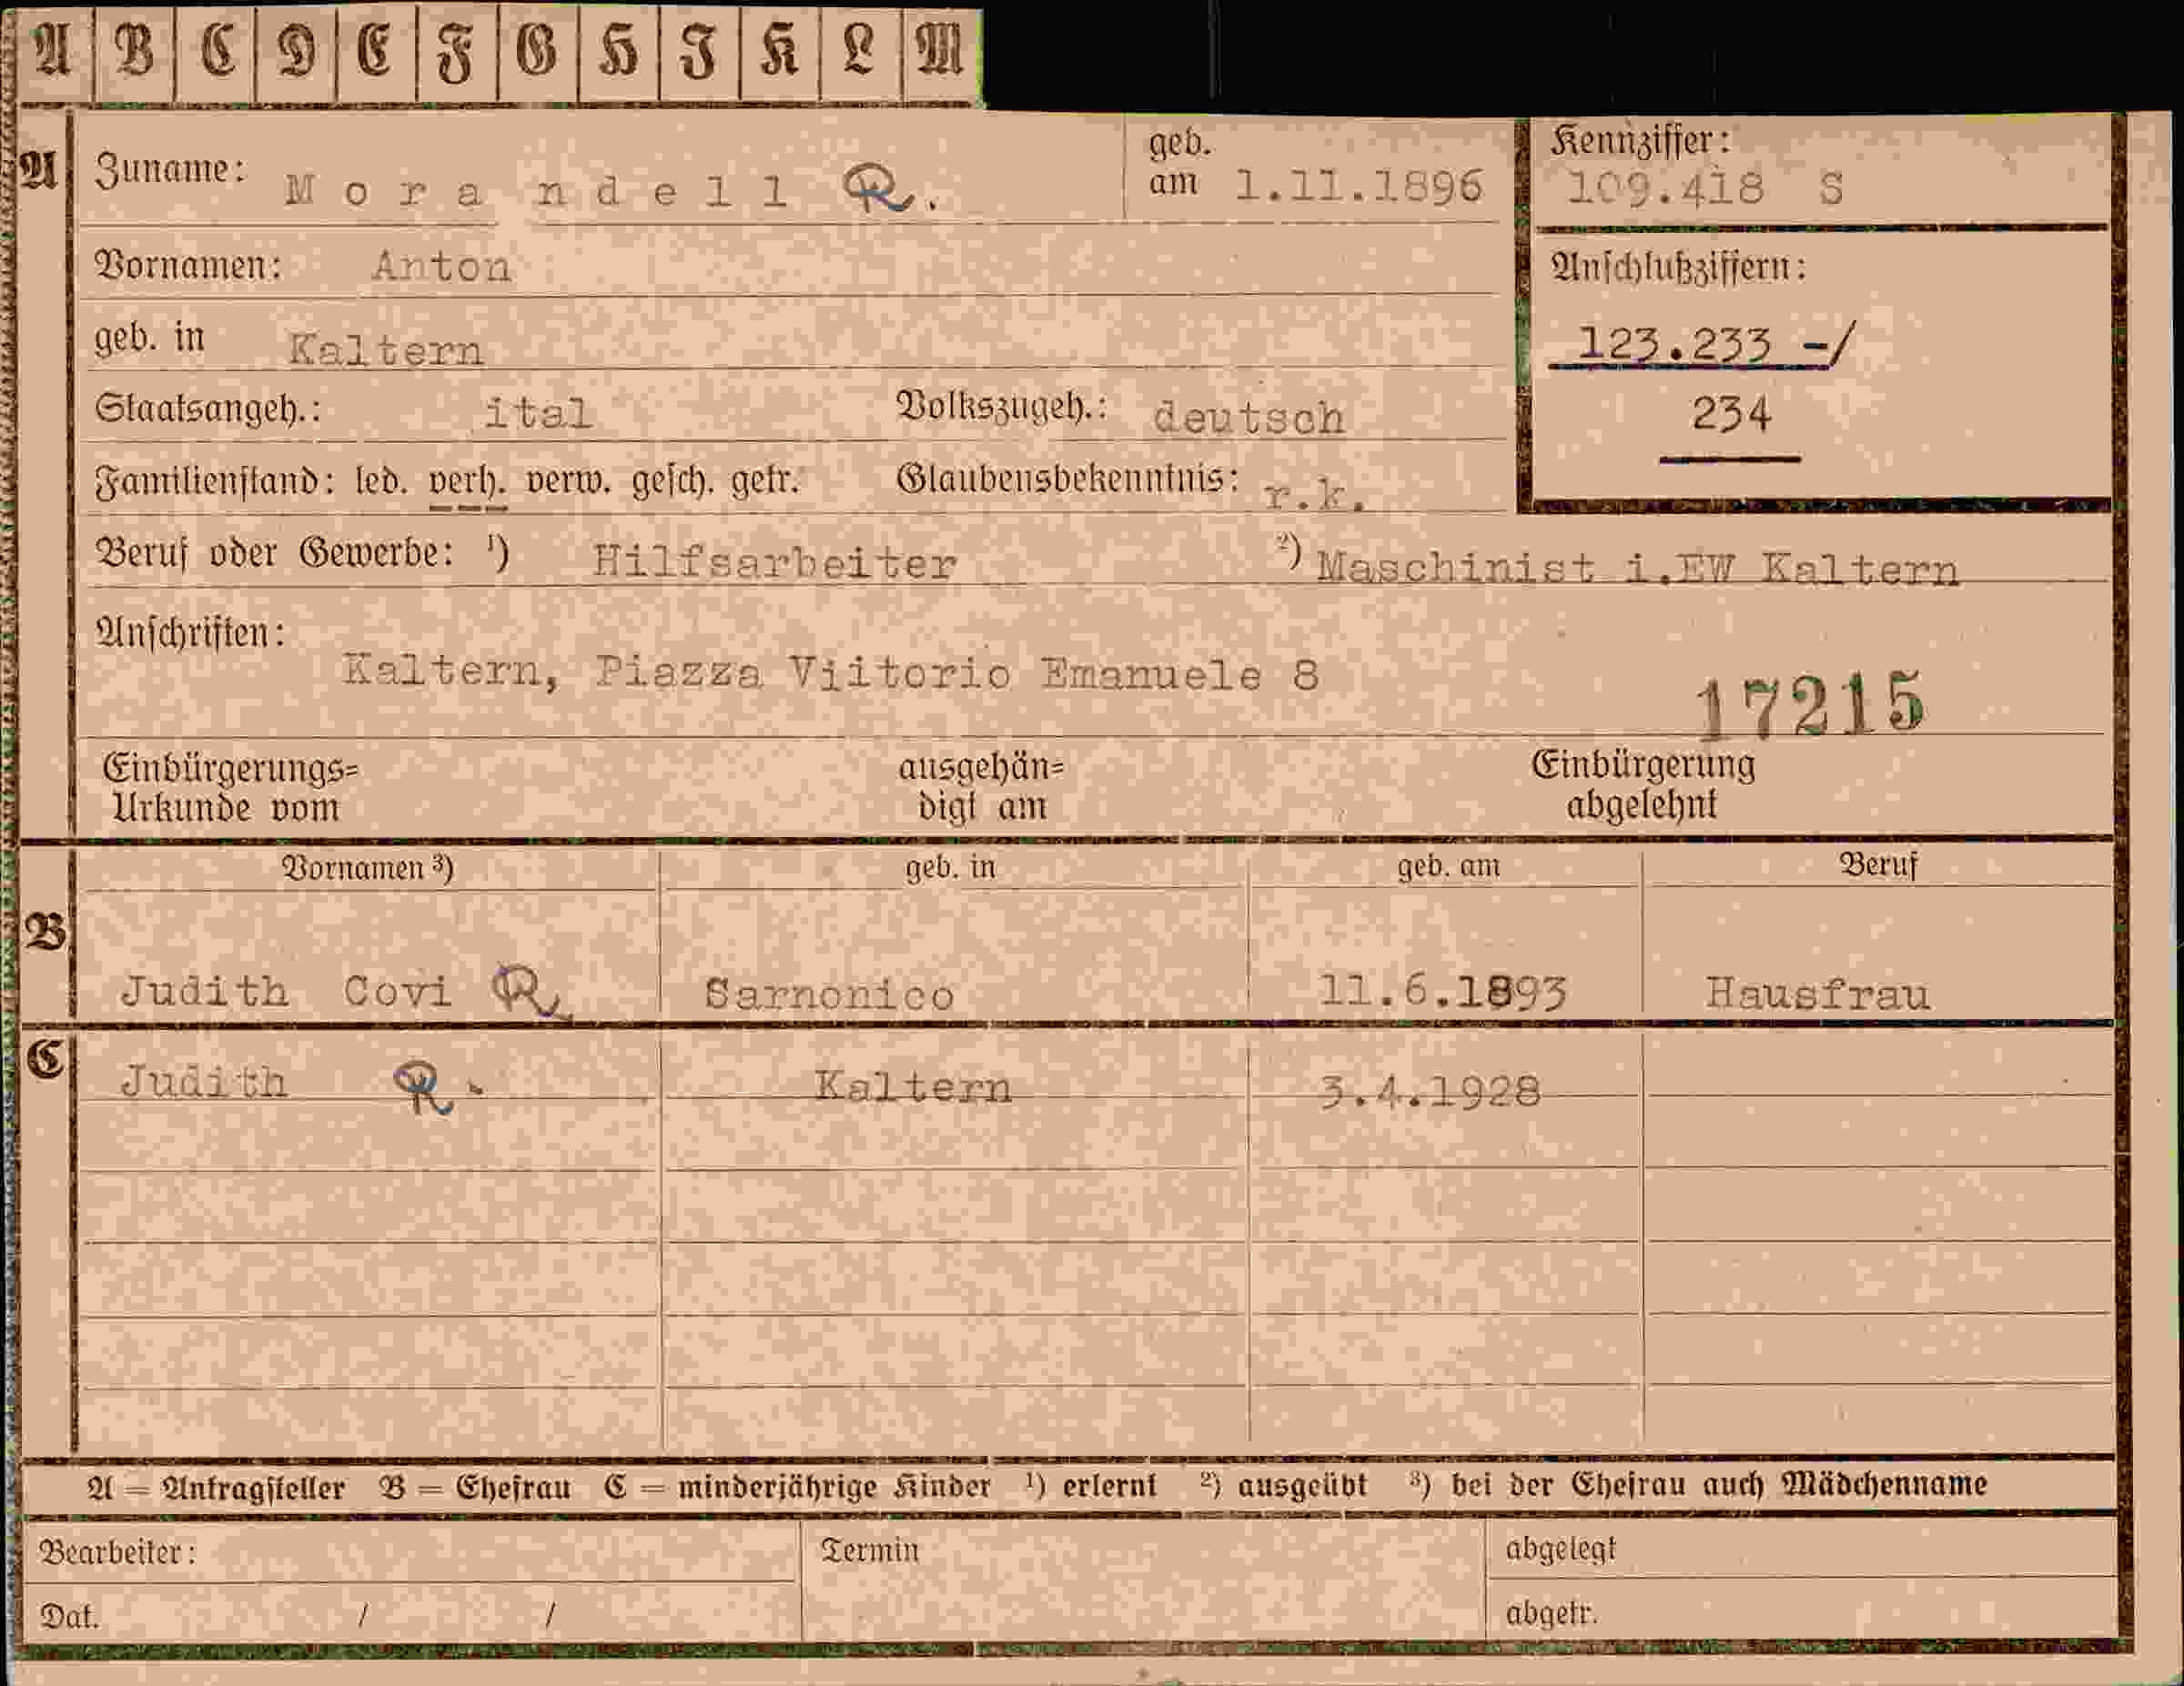 A B C D E F G H I K L M
A Zuname: Morandell R. geb. am 1.11.1896 Kennziffer: 109.418 S
Vornamen: Anton Anschlußziffern:
geb. in Kaltern 123.233 -/
Staatsangeh.: ital Volkszugeh.: deutsch 234
Familienstand: led. verh. verw. gesch. getr. Glaubensbekenntnis: r.k.
Beruf oder Gewerbe: 1) Hilfsarbeiter 2) Maschinist i.EW Kaltern
Anschriften:
Kaltern, Piazza Viitorio Emanuele 8
17215
Einbürgerungs= ausgehän= Einbürgerung
Urkunde vom digt am abgelehnt
Vornamen 3) geb. in geb. am Beruf
B
Judith Covi R. Sarnonico 11.6.1893 Hausfrau
C Judith R. Kaltern 3.4.1928
A = Antragsteller B = Ehefrau C = minderjährige Kinder 1) erlernt 2) ausgeübt 3) bei der Ehefrau auch Mädchenname
Bearbeiter: Termin abgelegt
Dat. / / abgetr.